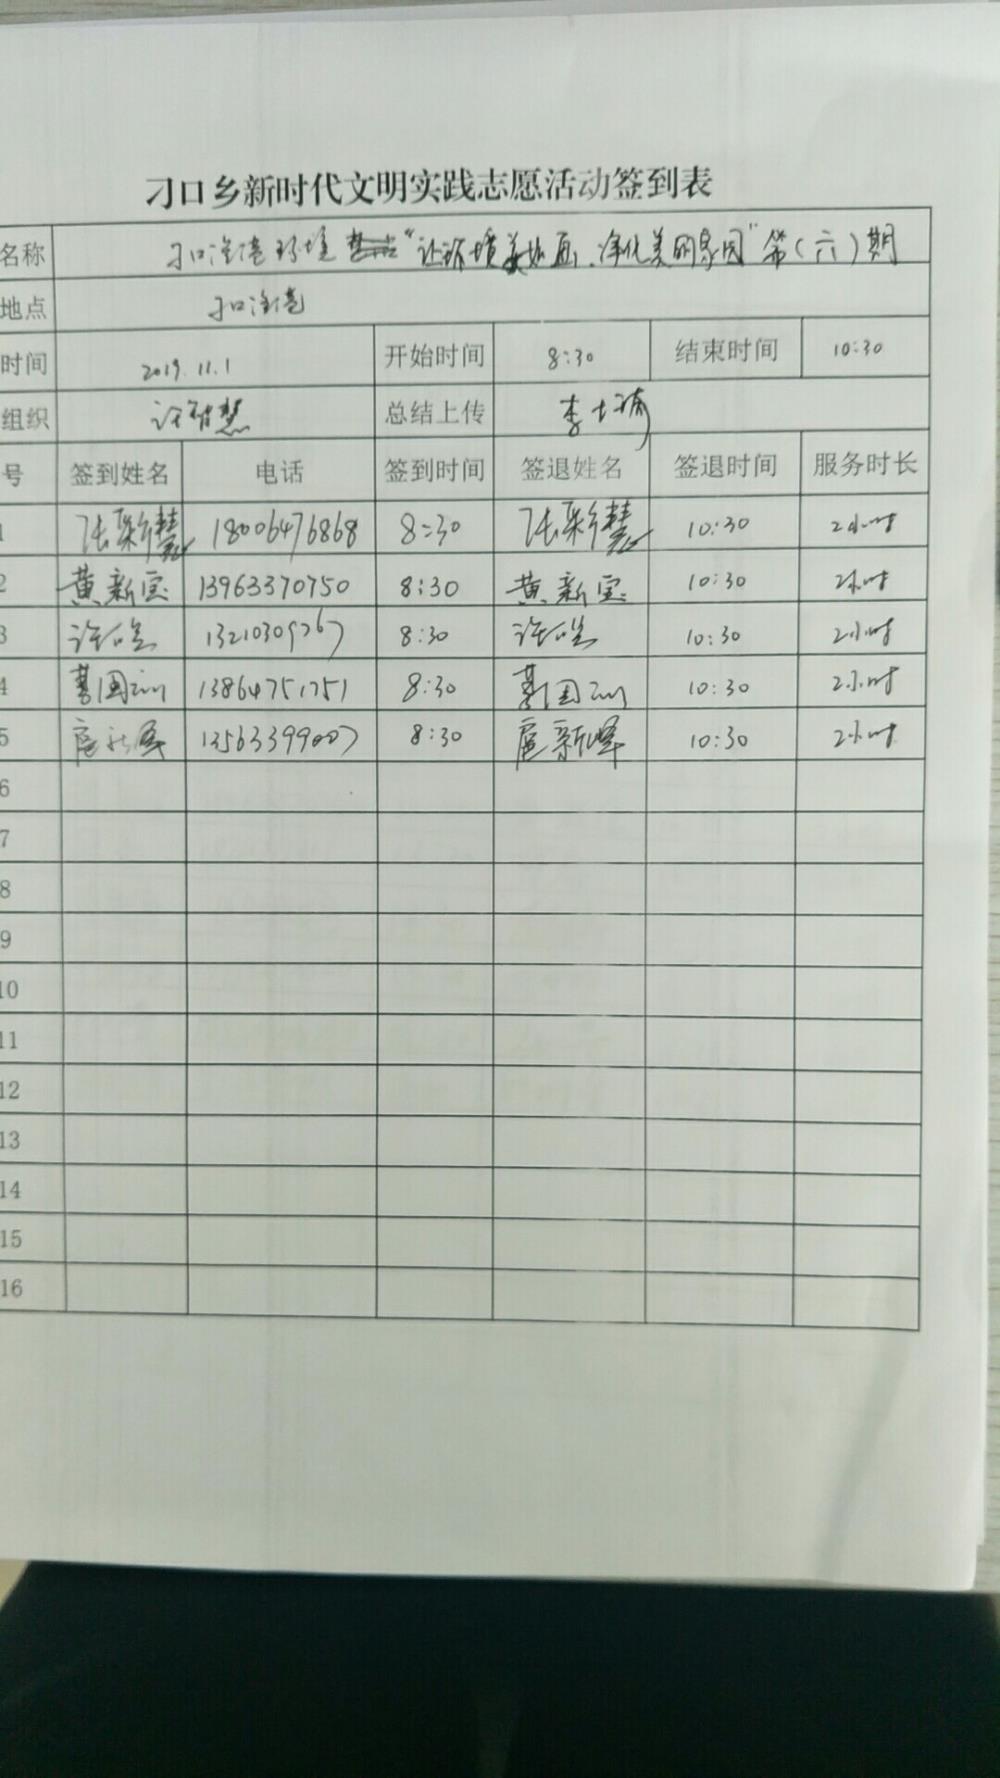 刁口乡新时代文明实践志愿活动签到表
名称 刁口渔港环境 "让环境美如画、净化美丽家园"第(六)期
地点 刁口渔港
时间 2019.11.1 开始时间 8:30 结束时间 10:30
组织 许智慧 总结上传
号 签到姓名 电话 签到时间 签退姓名 签退时间 服务时长
1 张彩慧 18006476868 8:30 张彩慧 10:30 2小时
2 黄新宝 13963370750 8:30 黄新宝 10:30 2小时
3 8:30 10:30 2小时
4 13864751751 8:30 10:30 2小时
5 扈新峰 13563399007 8:30 扈新峰 10:30 2小时
6
7
8
9
10
11
12
13
14
15
16